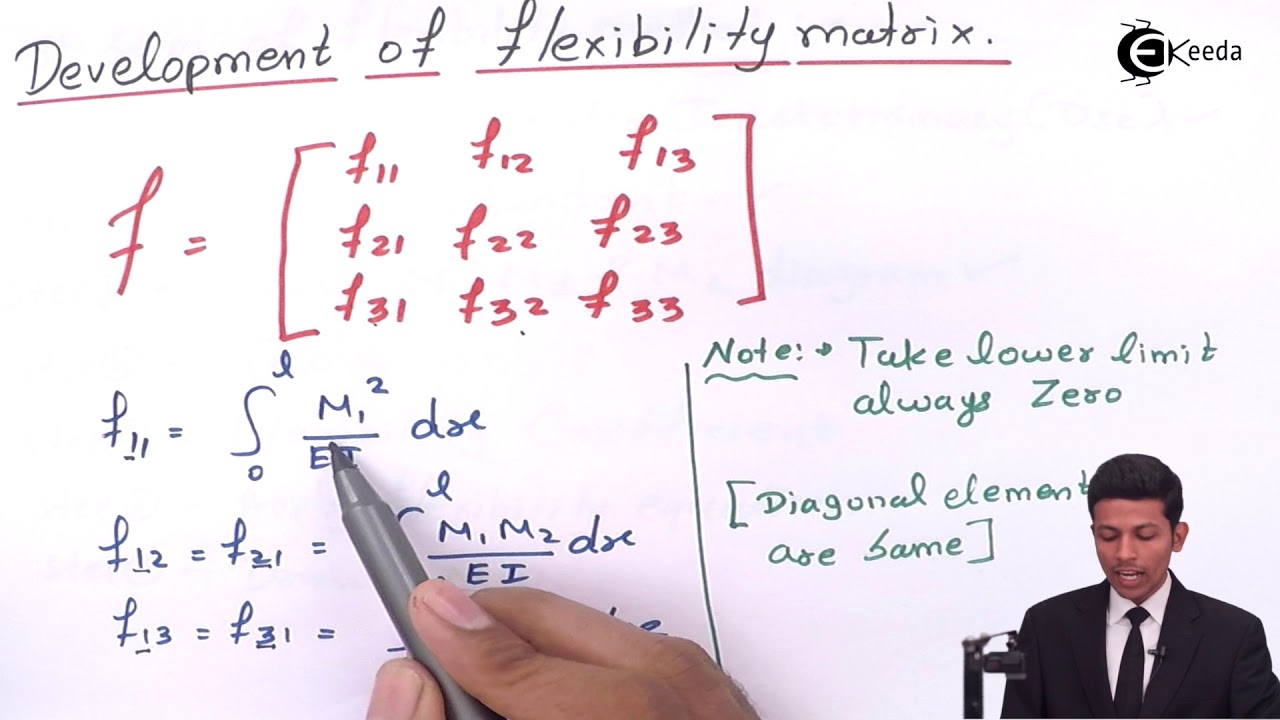 Development of flexibility matrix.
EKeeda
f = [ f11 f12 f13
f21 f22 f23
f31 f32 f33 ]
f11 = ∫0l M1² / EI dx
f12 = f21 = l M1 M2 / EI dx
f13 = f31 =
Note: • Take lower limit
always Zero
[Diagonal element
are same]